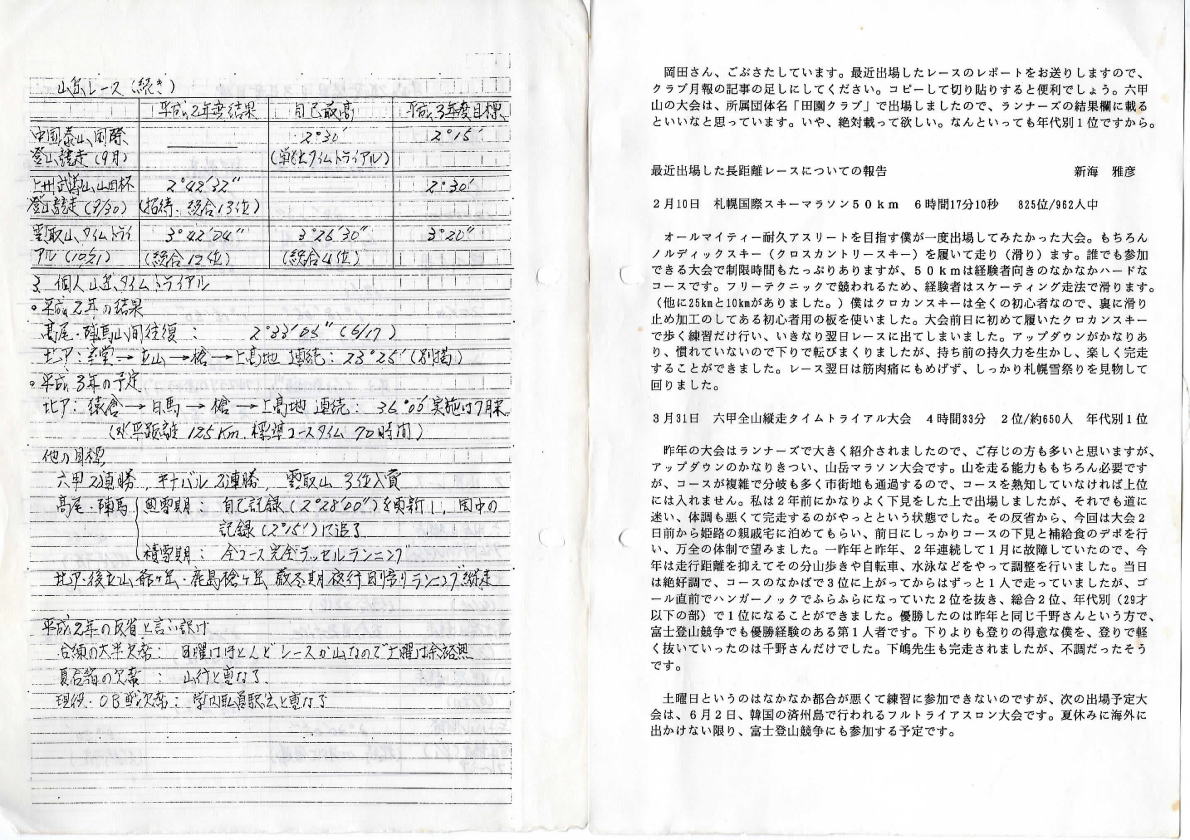 山岳レース(続き)
平成2年度結果 自己最高 平成3年度目標
中国泰山国際 ——— 2°30′ 2°15′
登山競走(9月) (単独タイムトライアル)
上州武尊山山田杯 2°42′32″ 2°30′
登山競走(9/30) (招待、総合13位)
雲取山タイムトライ 3°42′04″ 3°26′30″ 3°20″
アル(10/21) (総合12位) (総合4位)
3. 個人山岳タイムトライアル
○平成2年の結果
高尾・陣馬山間往復: 2°33′05″(6/17)
北ア:室堂→立山→槍→上高地 連続:23°25′(別掲)
○平成3年の予定
北ア:猿倉→白馬→槍→上高地 連続: 36°00′実施は7月末
(水平距離 125Km、標準コースタイム 70時間)
他の目標
六甲2連勝、キナバル2連勝、雲取山 3位入賞
高尾・陣馬 無雪期: 自己記録(2°28′00″)を更新し、田中の
記録(2°15′)に迫る
積雪期: 全コース完全ラッセルランニング
北ア・後立山 爺ヶ岳・鹿島槍ヶ岳 厳冬期夜行日帰りランニング縦走
平成2年の反省と言い訳
合宿の大半欠席: 日曜はほとんどレースか山なので土曜は余裕無
夏合宿の欠席: 山行と重なる
現役・OB戦欠席: 学内駅伝と重なる
岡田さん、ごぶさたしています。最近出場したレースのレポートをお送りしますので、
クラブ月報の記事の足しにしてください。コピーして切り貼りすると便利でしょう。六甲
山の大会は、所属団体名「田園クラブ」で出場しましたので、ランナーズの結果欄に載る
といいなと思っています。いや、絶対載って欲しい。なんといっても年代別1位ですから。
最近出場した長距離レースについての報告 新海 雅彦
2月10日 札幌国際スキーマラソン50km 6時間17分10秒 825位/962人中
オールマイティー耐久アスリートを目指す僕が一度出場してみたかった大会。もちろん
ノルディックスキー(クロスカントリースキー)を履いて走り(滑り)ます。誰でも参加
できる大会で制限時間もたっぷりありますが、50kmは経験者向きのなかなかハードな
コースです。フリーテクニックで競われるため、経験者はスケーティング走法で滑ります。
(他に25kmと10kmがありました。)僕はクロカンスキーは全くの初心者なので、裏に滑り
止め加工のしてある初心者用の板を使いました。大会前日に初めて履いたクロカンスキー
で歩く練習だけ行い、いきなり翌日レースに出てしまいました。アップダウンがかなりあ
り、慣れていないので下りで転びまくりましたが、持ち前の持久力を生かし、楽しく完走
することができました。レース翌日は筋肉痛にもめげず、しっかり札幌雪祭りを見物して
回りました。
3月31日 六甲全山縦走タイムトライアル大会 4時間33分 2位/約650人 年代別1位
昨年の大会はランナーズで大きく紹介されましたので、ご存じの方も多いと思いますが、
アップダウンのかなりきつい、山岳マラソン大会です。山を走る能力ももちろん必要です
が、コースが複雑で分岐も多く市街地も通過するので、コースを熟知していなければ上位
には入れません。私は2年前にかなりよく下見をした上で出場しましたが、それでも道に
迷い、体調も悪くて完走するのがやっとという状態でした。その反省から、今回は大会2
日前から姫路の親戚宅に泊めてもらい、前日にしっかりコースの下見と補給食のデポを行
い、万全の体制で望みました。一昨年と昨年、2年連続して1月に故障していたので、今
年は走行距離を抑えてその分山歩きや自転車、水泳などをやって調整を行いました。当日
は絶好調で、コースのなかばで3位に上がってからはずっと1人で走っていましたが、ゴ
ール直前でハンガーノックでふらふらになっていた2位を抜き、総合2位、年代別(29才
以下の部)で1位になることができました。優勝したのは昨年と同じ千野さんという方で、
富士登山競争でも優勝経験のある第1人者です。下りよりも登りの得意な僕を、登りで軽
く抜いていったのは千野さんだけでした。下嶋先生も完走されましたが、不調だったそう
です。
土曜日というのはなかなか都合が悪くて練習に参加できないのですが、次の出場予定大
会は、6月2日、韓国の済州島で行われるフルトライアスロン大会です。夏休みに海外に
出かけない限り、富士登山競争にも参加する予定です。